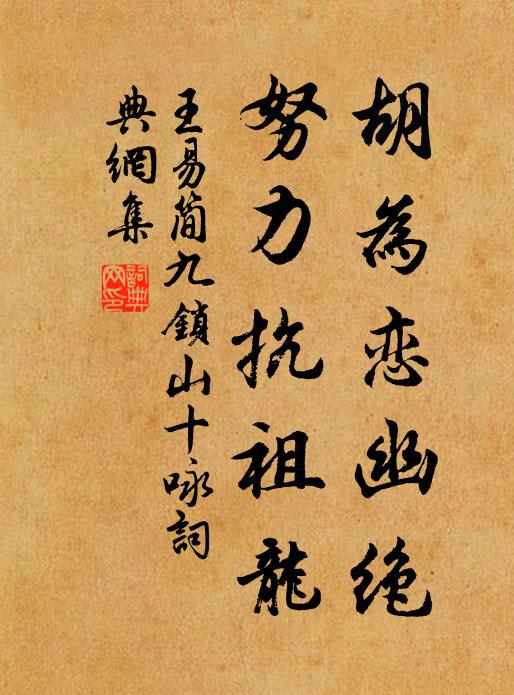 胡為恋幽绝
努力抗祖龍
王易简九鎖山十咏詞
典網集
詞典网印